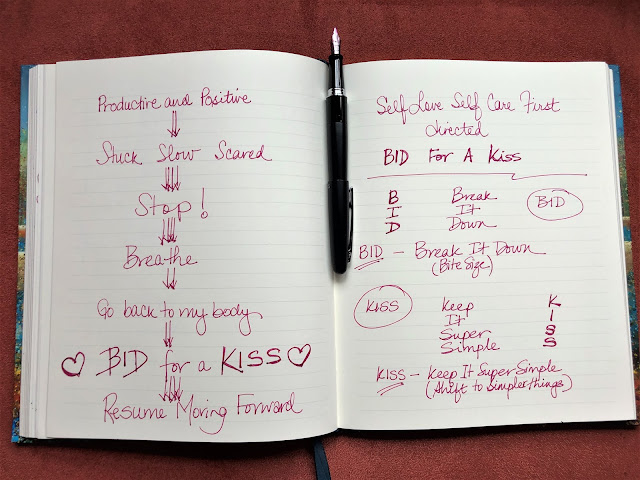 Productive and Positive
Stuck Slow Scared
Stop!
Breathe
Go back to my body
BID for a KISS
Resume Moving Forward
Self Love Self Care First
directed
BID For A Kiss
B Break
I It
D Down
BID
BID - Break It Down
(Bite Size)
KISS
Keep K
It I
Super S
Simple S
KISS - Keep It Super Simple
(Shift to simpler things)